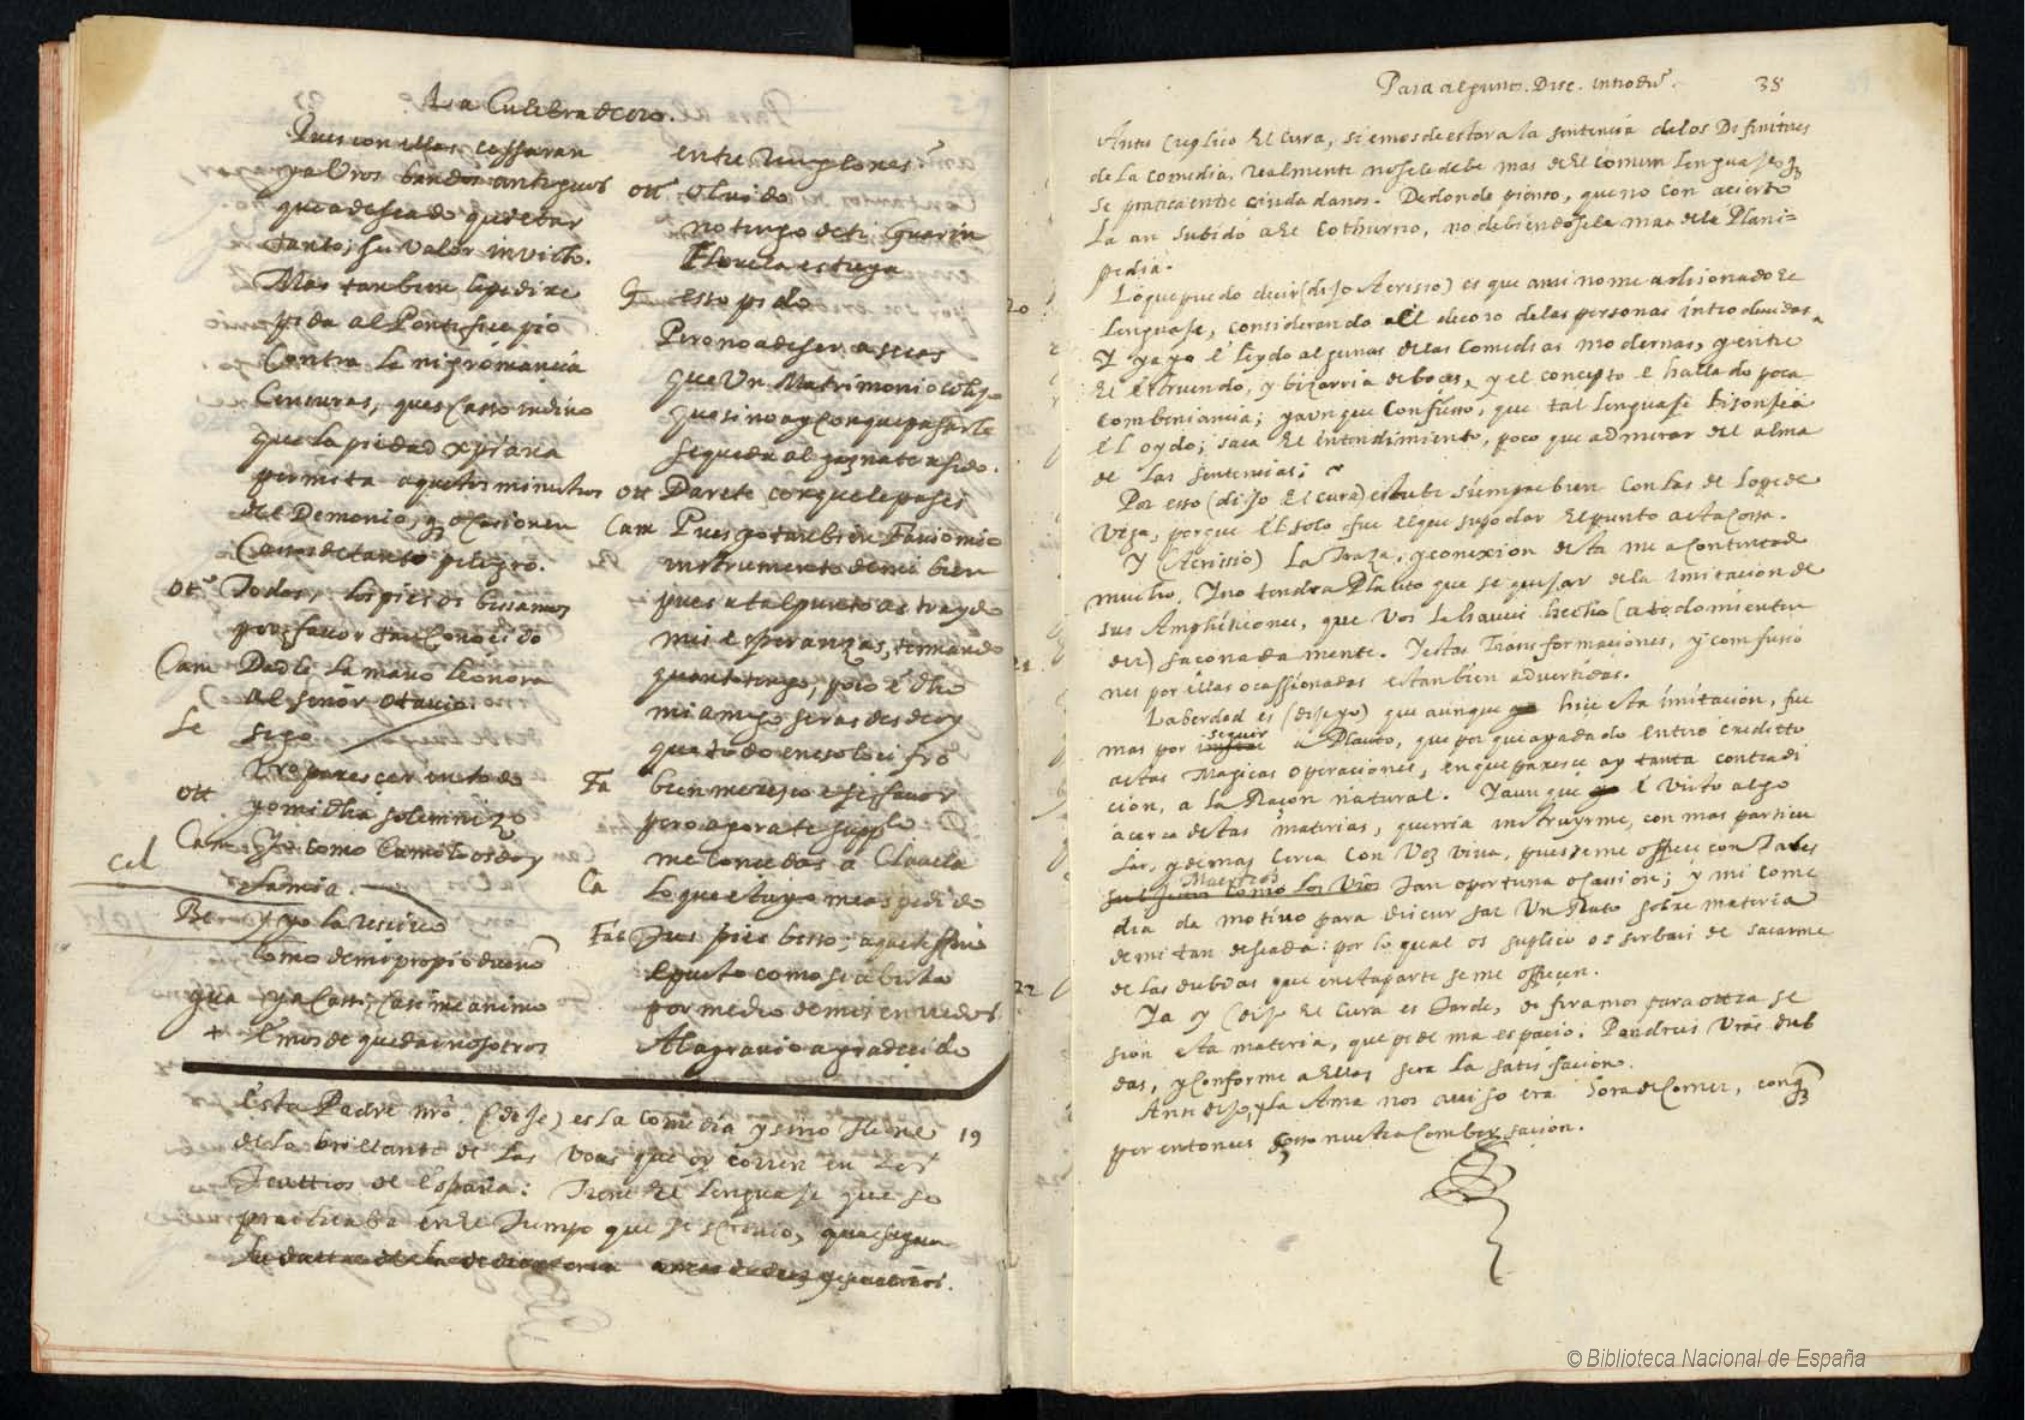 La Culebra de oro.
Pues con ellas cessaran
ya Vros bandos antiguos
que a deseado quietar
tanto, su valor invicto.
Mas tambien le pedire
pida al Pontifice pio
Contra la nigromancia
Censuras, ques Casso indino
que la piedad xpiana
permita aquestos ministros
del Demonio, q ocasionen
Casos de tanto peligro.
ott Todos, los pies os bessamos
por favor tan Conocido
Cam Dadle la mano Leonora
al señor Otavio.
Le sigo
Vro parecer en todo
ott yo mi dha solemnizo
Cam Yo como Camilo os doy
Cel
la mia.
Be y yo la recivo
como de mi propio dueño
gua ya Casi, Casi me animo
+ Emos de quedar nosotros
entre renglones?
ott Olvido
no tengo de ti Guarin
Florela es tuya
G esso pido
Pero no a de ser a secas
que Un Matrimonio colijo
que si no ay con que pasarle
se queda al gaznate asido.
ott Darete con que le pases
Cam Pues yo tambien Favio mio
instrumento de mi bien
pues a tal punto as traydo
mis esperanzas, teniendo
quanto tengo, poco e dho
mi amigo seras desde oy
que todo en esto lo cifro
Fa bien merezco ese favor
pero agora te supplo
me concedas a Clavela
Ca lo que es tuyo me as pedido
Fab Tus pies besso; aqueste fin
a puesto como se a visto
por medio de mis enrredos
Al agravio agradecido
Esta Padre nro. (dije) es la comedia y sino tiene 19
de lo brillante de las voces que oy corren en los
Teattros de España: Tiene el lenguaje que se
practicaba en el Tiempo que se escrivio, que segun
Para algunos. Disc. introdu. 38
Antes (replico el Cura, si emos de estar a la sentencia de los Difinitores
de la comedia, realmente no se le debe mas de el comun lenguaje q
se pratica entre ciudadanos. De donde pienso, que no con acierto
la an subido a el Cothurno, no debiendosele mas de la Plani=
pedia.
Lo que puedo decir (dijo Acrisio) es que a mi no me a disonado el 20
lenguaje, considerando el decoro de las personas introducidas.
Y ya yo e leydo algunas de las Comedias modernas, y entre
el estruendo, y bizarria de boces, y el concepto e hallado poca
combeniancia; y aunque Confieso, que tal lenguaje lisonjea
el oydo; saca el entendimiento, poco que admirar del alma
de las sentencias;
Por esso (dijo el cura) estube siempre bien con las de Lope de
Vega, porque el solo fue el que supo dar el punto a esta Cossa.
Y (Acrissio) La Traza, y conexion desta me a Contentado
mucho. Y no tendra Plauto que se quejar de la imitacion de
sus Amphitriones, que vos la haveis hecho (a todo mi enten
der) saconadamente. Y estas Transformaciones, y comfusio 21
nes por ellas ocassionadas estan bien advertidas.
La berdad es (dije yo) que aunque hice esta imitacion, fue
mas por seguir a Plauto, que porque aya dado entero creditto
a estas Magicas operaciones, en que parece ay tanta contradi
cion, a la Raçon natural. Y aunque e visto algo
acerca destas materias, querria instruyrme, con mas particu
lar, y de mas Cerca Con Voz viva, pues se me offrece con Tales
Maestros Tan oportuna ocassion; y mi come
dia da motivo para discursar Un Rato sobre materia
de mi tan deseada: por lo qual os suplico os serbais de sacarme
de las dubdas que en esta parte se me offrecen. 22
Ya oy (dijo el Cura es Tarde, difiramos para otra se
sion esta materia, que pide mas espacio: Pondreis vras dub
das, y conforme a ellas sera la satisfacion.
Ann dijo, y la Ama nos aviso era Hora de Comer, con q
por entonces Cesso nuestra Combersacion.
© Biblioteca Nacional de España